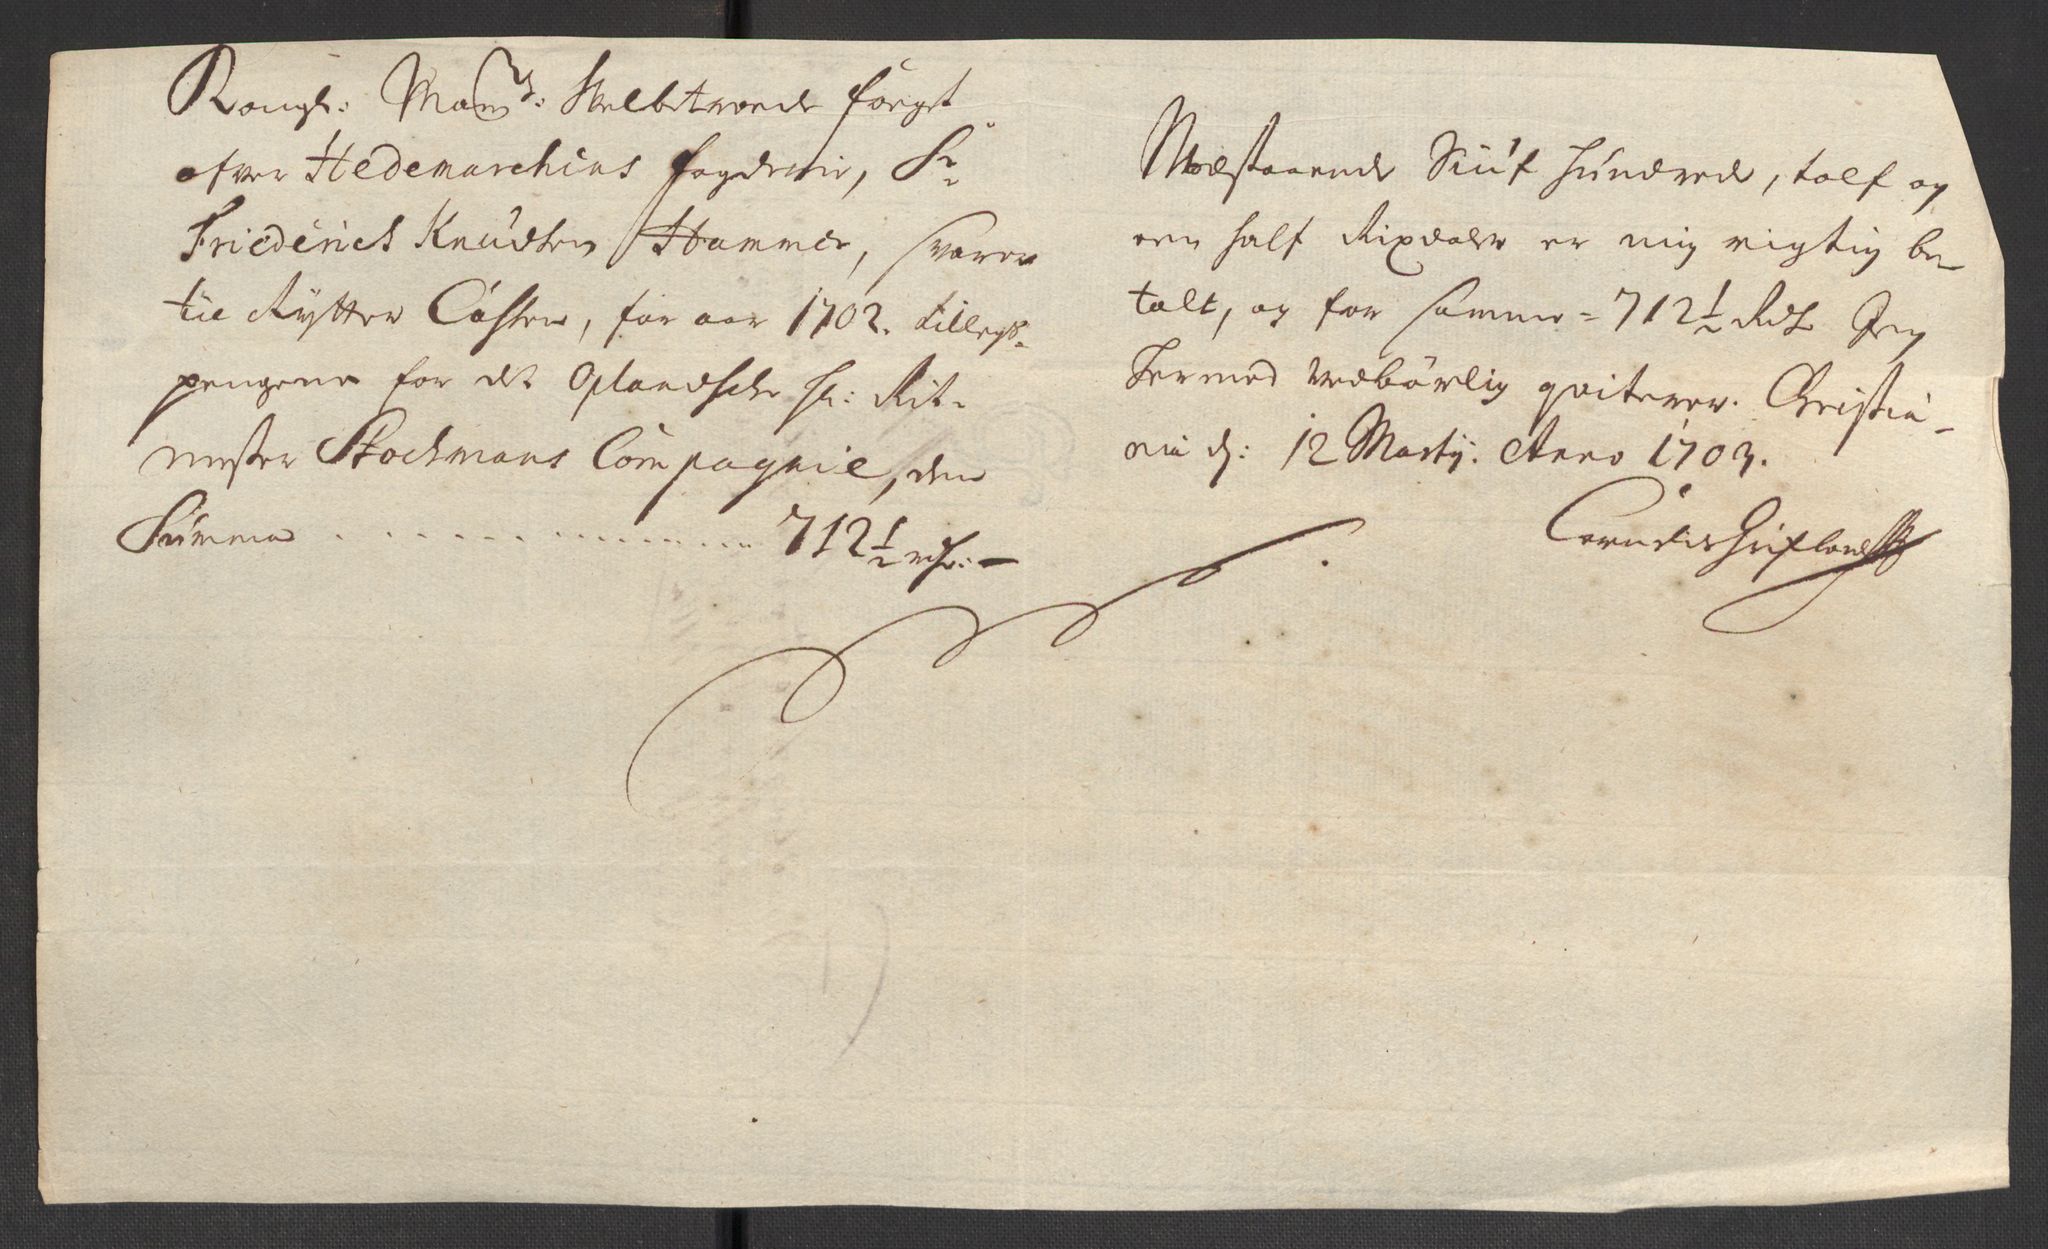 Kongl: May.ts: Velbetroede foeget
ofver Hedemarchens fogderie, Sr
Friederich Knudsen Hammer, svarer
til Rytter Cassen, for aar 1702. tillegs-
pengene for det Oplandsche Hr: Rit-
mester Stockmans Compagnie, den
Summa . . . . . . . . . . . . 712½ rdr: —
Modstaaende Siuf hundrede, tolf og
een half Rixdaler er mig rigtig be-
talt, og for samme = 712½ Rdr Jeg
hermed vedbørlig qviterer. Christia-
nia d: 12 Martij. Anno 1703.